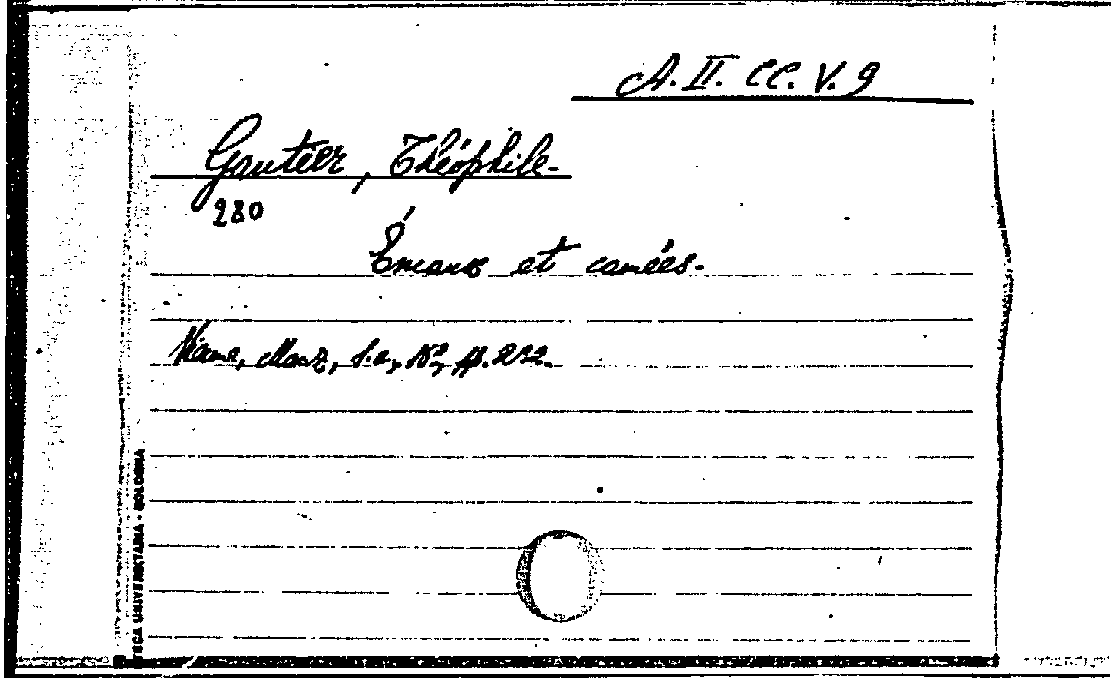 A. II. CC. V. 9
Gautier, Théophile.
280
Émaux et camées.
Vienne, Manz, s.a., 16°, pp. 232.
TECA UNIVERSITARIA - BOLOGNA